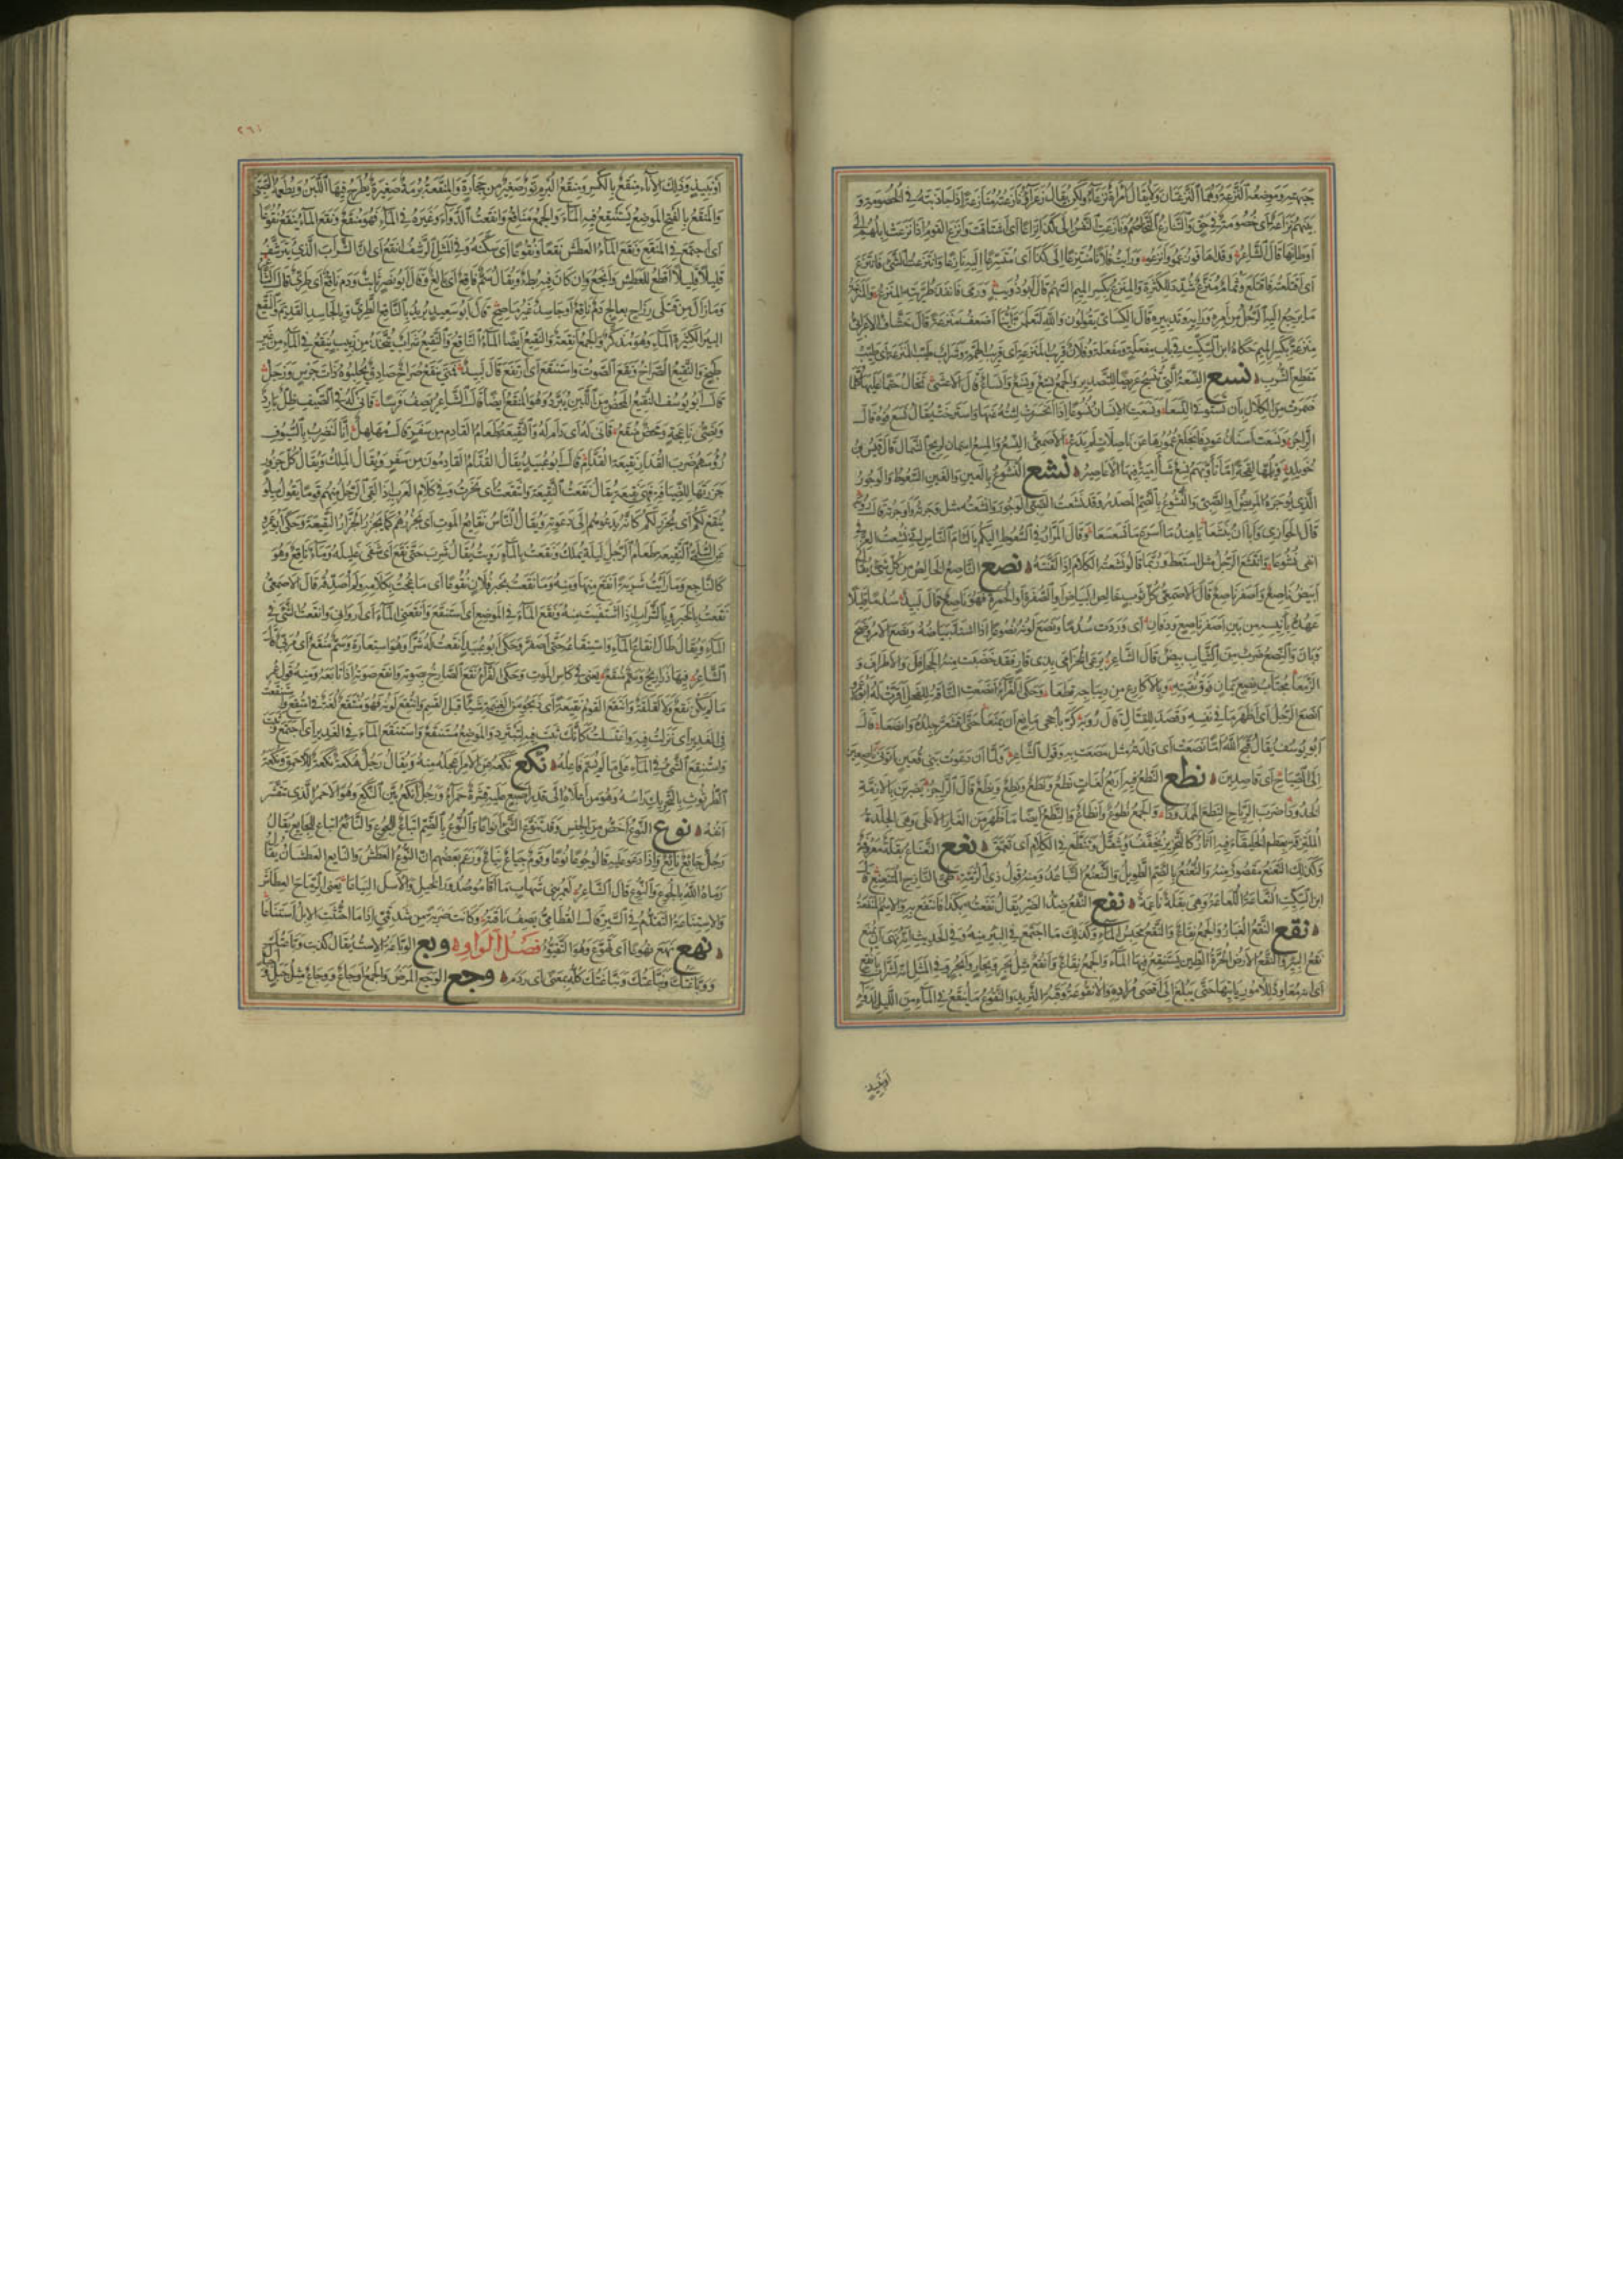 جبهته وموضعه النزعة وهما النزعتان ولا يقال امرأة نزعاء ولكن يقال زعراء ونازعته منازعة إذا جاذبته في الخصومة و
بينهم نزاعة أي خصومة في حق والتنازع التخاصم ونازعت النفس إلى كذا نزاعا أي اشتاقت وأنزع القوم إذا نزعت إبلهم إلى
أوطانها قال الشاعر وقد أهافوا زعموا وأنزعوا ورأيت فلانا متنزعا إلى كذا أي متسرعا إليه نازعا وانتزعت الشيء فانتزع
أي اقتلعته فاقتلع وثمام منزع شدد للكثرة والمنزع بكسر الميم السهم قال أبو ذؤيب ورمى فأنفذ طرتيه المنزع والمنزعة
ما يرجع إليه الرجل من أمره ورأيه وتدبيره قال الكسائي يقولون والله لتعلمن أينا أضعف منزعة قال خشاف الأعرابي
منزعة بكسر الميم حكاه ابن السكيت في باب مفعلة ومفعلة وفلان قريب المنزعة أي قريب الهمة وشراب طيب المنزعة أي طيب
مقطع الشرب نسع النسعة التي تنسج عريضا للتصدير والجمع نسع ونسع وأنساع قال الأعشى تخال حتما عليها كلما
ضمرت من الكلال بأن تستوفي النسعا ونسعت الأسنان نسوعا إذا انحسرت لثته عنها واسترخت يقال نسع فوه قال
الراجز ونسعت أسنان عود فانجلع عمورها عن ناصلات لم يدع الأصمعي النسع والمسع اسمان لريح الشمال قال قيس بن
خويلد ويلمها لقحة إما تأوبهم نسع شآمية فيها الأعاصير نشع النشوع بالعين والغين السعوط والوجور
الذي يوجره المريض أو الصبي والنشوع بالضم المصدر وقد نشعت الصبي الوجور وأنشعته مثل وجرته وأوجرته قال
قال الحوازي وأبى أن ينشعا يا هند ما أسرع ما تسعسعا وقال المرار في السعوط إليكم يا لئام الناس إني نشعت العز في
أنفي نشوعا وانتشع الرجل مثل استعط وربما قالوا نشعته الكلام إذا لقنته نصع الناصع الخالص من كل شيء يقال
أبيض ناصع وأصفر ناصع قال الأصمعي كل ثوب خالص البياض أو الصفرة أو الحمرة فهو ناصع قال لبيد سدما قليلا
عهده بأنيسه من بين أصفر ناصع ودفان أي وردت سدما ونصع لونه نصوعا إذا اشتد بياضه ونصع الأمر وضح
وبان والنصع ضرب من الثياب بيض قال الشاعر يرعى الخزامى بذي قار فقد خضبت منه الجحافل والأطراف و
الزمعا مجتاب نصع يمان فوق نقبته وبالأكارع من ديباجه قطعا وحكى الفراء أنصعت الناقة للفحل أقرت له
أنصع الرجل أي أظهر ما في نفسه وقصد للقتال قال رؤبة كر بأحجى مانع أن يمنعا حتى اقشعر جلده وأنصعا قال
أبو يوسف يقال قبح الله أما نصعت به أي ولدته مثل مصعت به وقول الشاعر ولما أن دعوت بني قعين أتوني ناصعين
إلى الصياح أي قاصدين نطع النطع فيه أربع لغات نطع ونطع ونطع ونطع قال الراجز يضربن بالأزمة
الخدودا ضرب الرياح النطع الممدودا والجمع نطوع وأنطاع والنطع أيضا ما ظهر من الغار الأعلى وهي الجلدة
الملتزقة بعظم الخليقاء فيها آثار كالتحزيز يخفف ويثقل وتنطع في الكلام أي تعمق نعع النعناع بقلة معروفة
وكذلك النعنع مقصور منه والنعنع بالضم الطويل والتنعنع التباعد ومنه قول ذي الرمة طي النازح المتنعنع
ابن السكيت النعاعة اللعاعة وهي بقلة ناعمة نفع النفع ضد الضر يقال نفعته بكذا فانتفع به والاسم المنفعة
نقع النقع الغبار والجمع نقاع والنقع محبس الماء وكذلك ما اجتمع في البئر منه وفي الحديث أنه نهى أن يمنع
نقع البئر والنقع الأرض الحرة الطين يستنقع فيها الماء والجمع نقاع وأنقع مثل بحر وبحار وأبحر وفي المثل إنه لشراب بأنقع
أي أنه معاود للأمور يأتيها حتى يبلغ إلى أقصى مراده والأنقوعة وقبة الثريد والنقوع ما ينقع في الماء من الليل لدواء
أو نبيذ
٢٦٤
أو نبيذ وذلك الإناء منقع بالكسر ومنقع البرم تور صغير من حجارة والمنقعة برمة صغيرة يطرح فيها اللبن ويطعمه الصبي
والمنقع بالفتح الموضع يستنقع فيه الماء والجمع مناقع وأنقعت الدواء وغيره في الماء فهو منقع ونقع الماء ينقع نقوعا
أي اجتمع في المنقع ونقع الماء العطش نقعا ونقوعا أي سكنه وفي المثل الرشف أنقع أي إن الشراب الذي يترشف
قليلا قليلا أقطع للعطش وأنجع وإن كان فيه بطء ويقال سم ناقع أي بالغ وقال أبو نصر ثابت ودم ناقع أي طري قال الشاعر
وما زال من قتلى رزاح بعالج دم ناقع أو جاسد غير ماصح قال أبو سعيد يريد بالناقع الطري وبالجاسد القديم والنقيع
البئر الكثيرة الماء وهو مذكر والجمع أنقعة والنقيع أيضا الماء الناقع والنقيع شراب يتخذ من زبيب ينقع في الماء من غير
طبخ والنقيع الصراخ ونقع الصوت واستنقع أي ارتفع قال لبيد فمتى ينقع صراخ صادق يحلبوه ذات جرس وزجل
قال أبو يوسف النقيع المحض من اللبن يبرد وهو المنقع أيضا قال الشاعر يصف فرسا قانى له في الصيف ظل بارد
ونصي ناعجة ومحض منقع قانى له أي دام له والنقيعة طعام القادم من سفر قال مهلهل إنا لنضرب بالسيوف
رؤوسهم ضرب القدار نقيعة القدام قال أبو عبيد يقال القدام القادمون من سفر ويقال الملك ويقال كل جزور
جزرتها للضيافة فهي نقيعة يقال نقعت النقيعة وانتقعت أي نحرت وفي كلام العرب إذا لقي الرجل منهم قوما يقول ميلوا
ينقع لكم أي يجزر لكم كأنه يدعوهم إلى دعوته ويقال الناس نقائع الموت أي يجزرهم كما يجزر الجزار النقيعة وحكى أبو عمرو
عن السلمي النقيعة طعام الرجل ليلة يملك ونقعت بالماء رويت يقال شرب حتى نقع أي شفى غليله وماء ناقع وهو
كالناجع وما رأيت شربة أنقع منها ومنه وما نقعت بخبر فلان نقوعا أي ما عجت بكلامه ولم أصدقه قال الأصمعي
نقعت بالخبر وبالشراب إذا اشتفيت منه ونقع الماء في الموضع أي استنقع وأنقعني الماء أي أرواني وأنقعت الشيء في
الماء ويقال طال إنقاع الماء واستنقاعه حتى اصفر وحكى أبو عبيد أنقعت له شرا وهو استعارة وسم منقع أي مربى قال
الشاعر فيها ذراريح وسم منقع يعني في كأس الموت وحكى الفراء نقع الصارخ بصوته وأنقع صوته إذا تابعه ومنه قول عمر
ما لم يكن نقع ولا لقلقة وانتقع القوم نقيعة أي ذبحوا من الغنيمة شيئا قبل القسم وانتقع لونه فهو منتقع لغة في امتقع واستنقعت
في الغدير أي نزلت فيه واغتسلت كأنك ثبت فيه لتتبرد والموضع مستنقع واستنقع الماء في الغدير أي اجتمع وثبت
واستنقع الشيء في الماء على ما لم يسم فاعله نكع نكعه عن الأمر أعجله عنه ويقال رجل هكعة نكعة للأحمق ونكعة
الطرثوث بالتحريك رأسه وهو من أعلاه إلى قدر إصبع عليه قشرة حمراء ورجل أنكع بين النكع وهو الأحمر الذي تقشر
أنفه نوع النوع أخص من الجنس وقد تنوع الشيء أنواعا والنوع بالضم إتباع للجوع والنائع إتباع للجائع يقال
رجل جائع نائع وإذا دعوا عليه قالوا جوعا نوعا وقوم جياع نياع وزعم بعضهم أن النوع العطش والنائع العطشان يقال
رماه الله بالجوع والنوع قال الشاعر لعمر بني شهاب ما أقاموا صدور الخيل والأسل النياعا يعني الرماح العطاش
والاستناعة التقدم في السير قال القطامي يصف ناقته وكانت ضربة من شدقمي إذا ما احتثت الإبل استناعا
نهع نهع نهوعا أي تهوع وهو التقيؤ فصل الواو وبع الوباعة الاست يقال كذبت وباعتك
ووباغتك ونباعتك ونباغتك كله بمعنى أي ردم وجع الوجع المرض والجمع أوجاع ووجاع مثل جبل